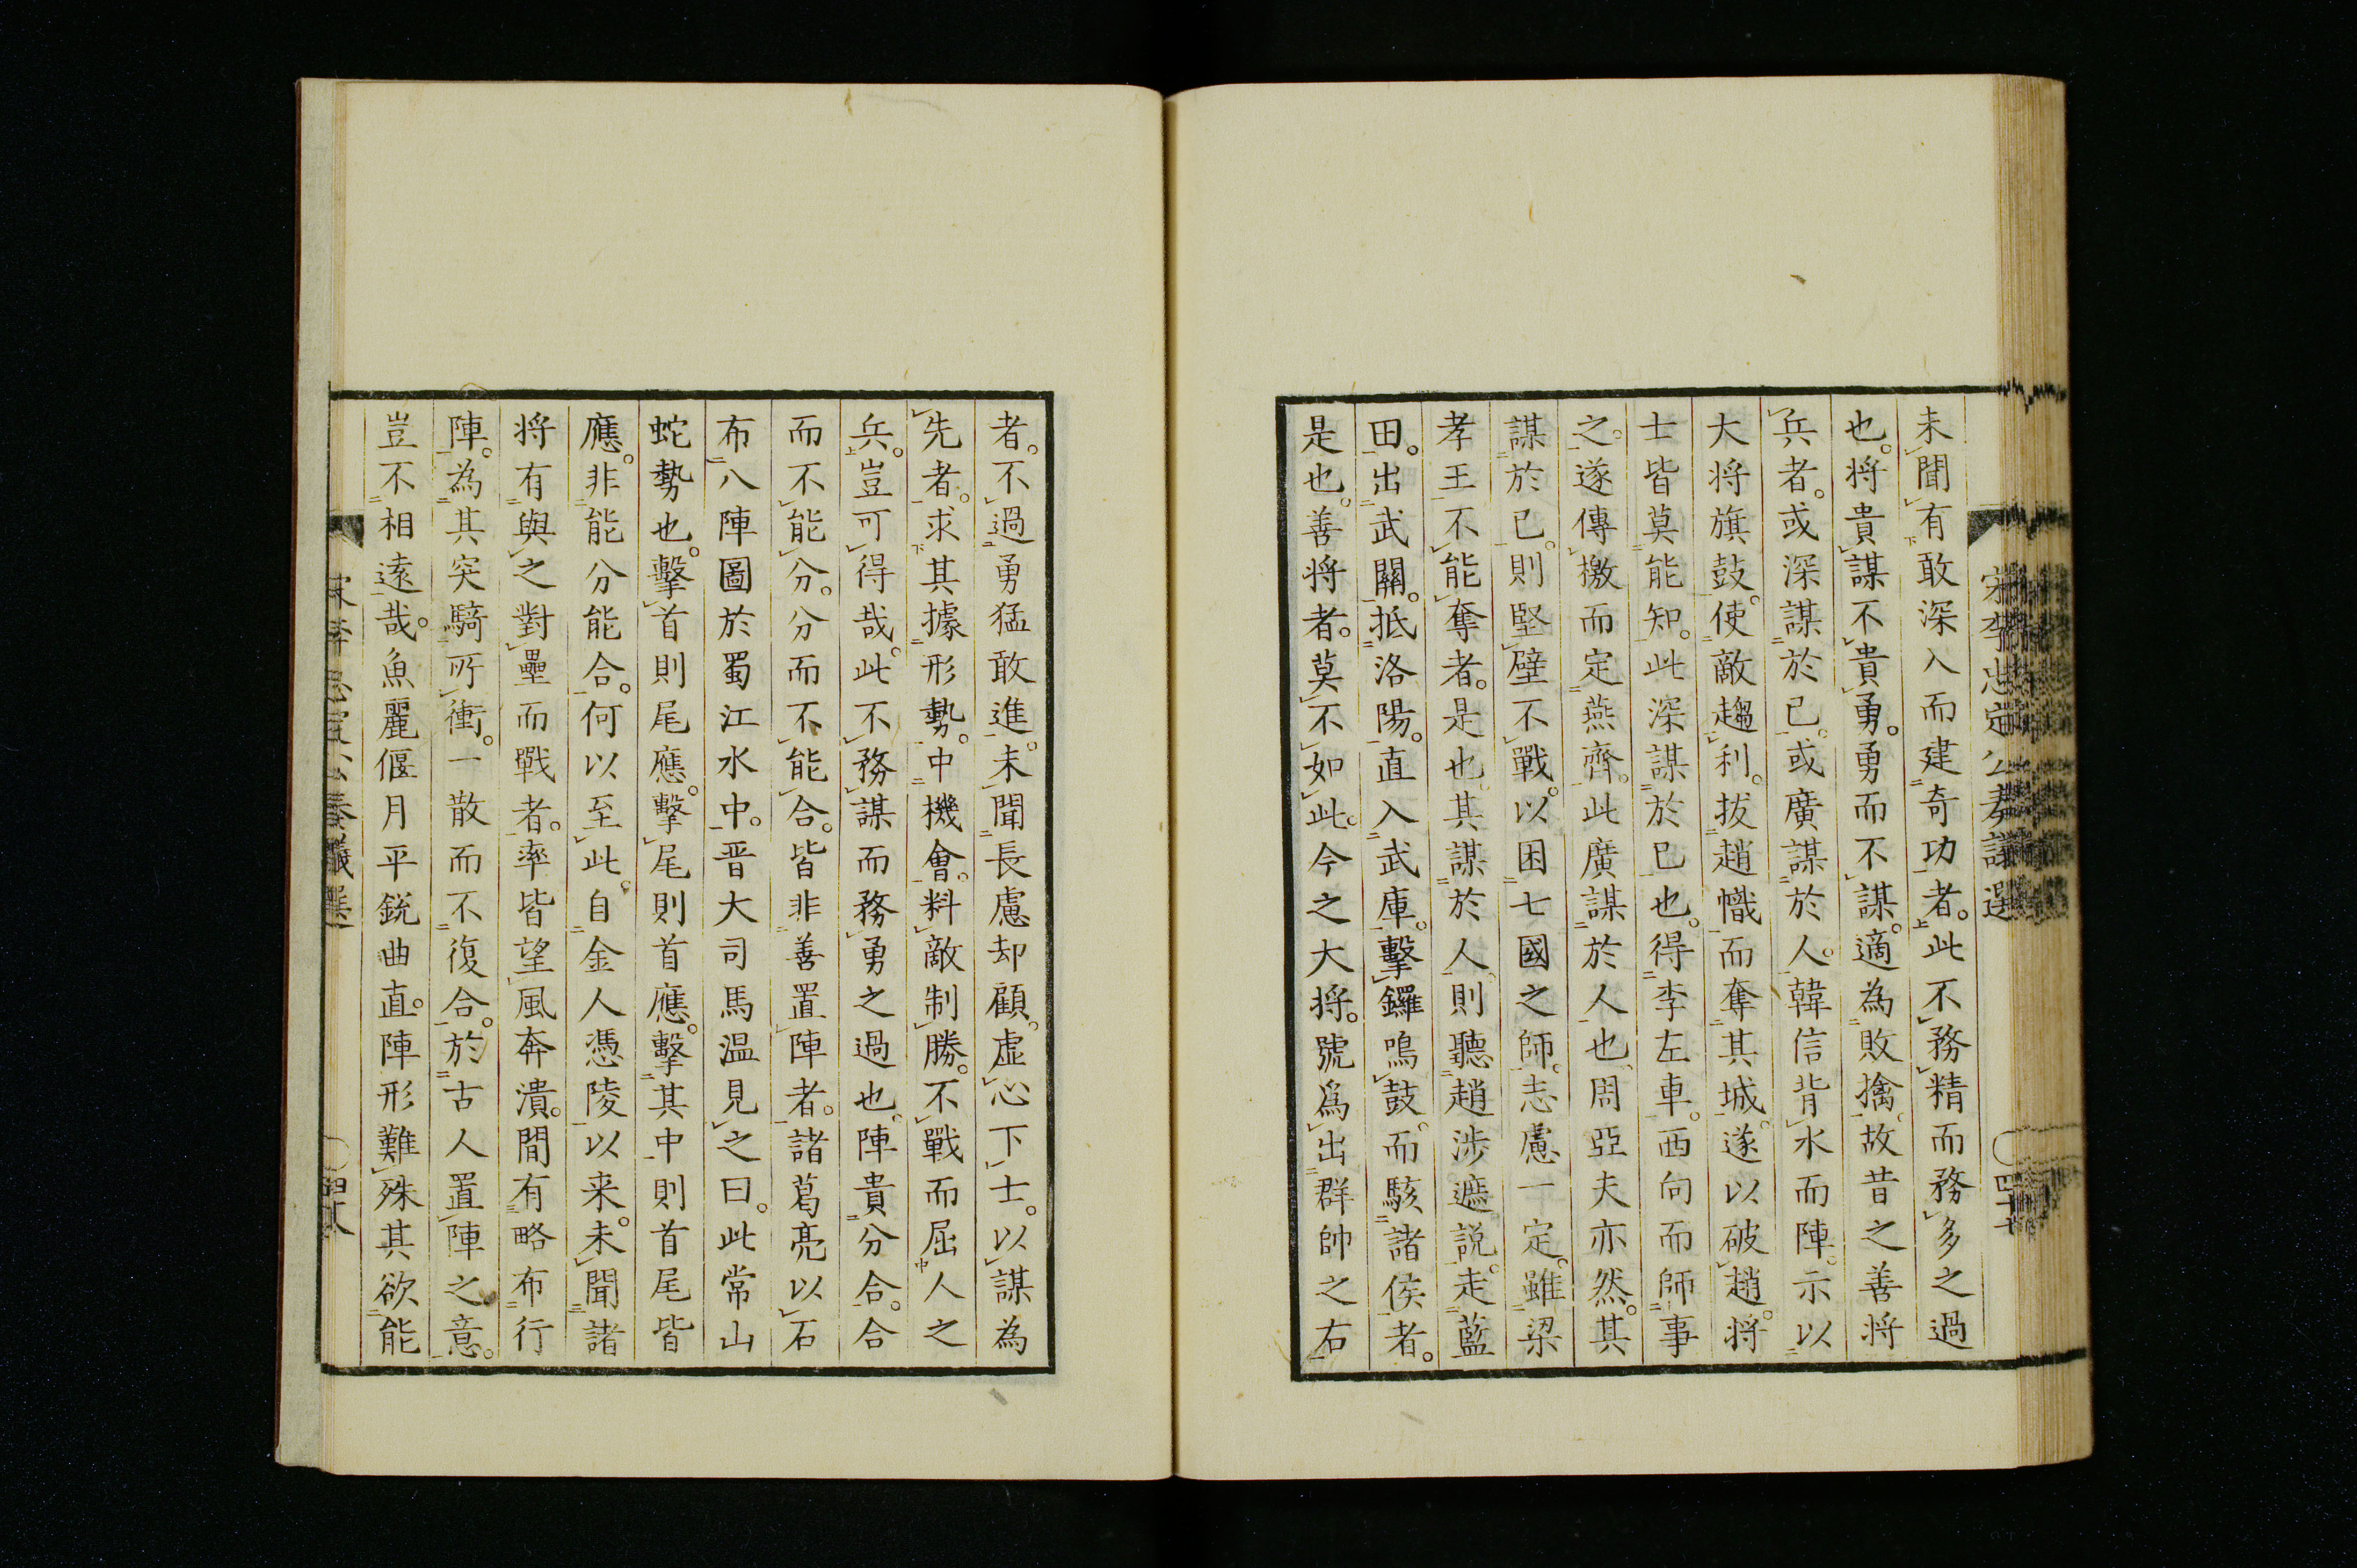 未聞有敢深入而建奇功者。此不務精而務多之過
也。将貴謀不貴勇。勇而不謀。適為敗擒。故昔之善将
兵者。或深謀於己。或廣謀於人。韓信背水而陣。示以
大将旗鼓。使敵趨利。拔趙幟而奪其城。遂以破趙。将
士皆莫能知。此深謀於己也。得李左車。西向而師事
之。遂傳檄而定燕齊。此廣謀於人也。周亞夫亦然。其
謀於己。則堅壁不戰。以困七國之師。志慮一定。雖梁
孝王不能奪者。是也。其謀於人。則聽趙涉遮說。走藍
田。出武關。抵洛陽。直入武庫。擊鑼鳴鼓。而駭諸侯者。
是也。善将者。莫不如此。今之大将。號爲出群帥之右
者。不過勇猛敢進。未聞長慮却顧。虛心下士。以謀為
先者。求其據形勢。中機會。料敵制勝。不戰而屈人之
兵。豈可得哉。此不務謀而務勇之過也。陣貴分合。合
而不能分。分而不能合。皆非善置陣者。諸葛亮以石
布八陣圖於蜀江水中。晋大司馬温見之曰。此常山
蛇勢也。擊首則尾應。擊尾則首應。擊其中則首尾皆
應。非能分能合。何以至此。自金人憑陵以来。未聞諸
将有與之對壘而戰者。率皆望風奔潰。間有略布行
陣。為其突騎所衝。一散而不復合。於古人置陣之意。
豈不相遠哉。魚麗偃月平銳曲直。陣形難殊其欲能